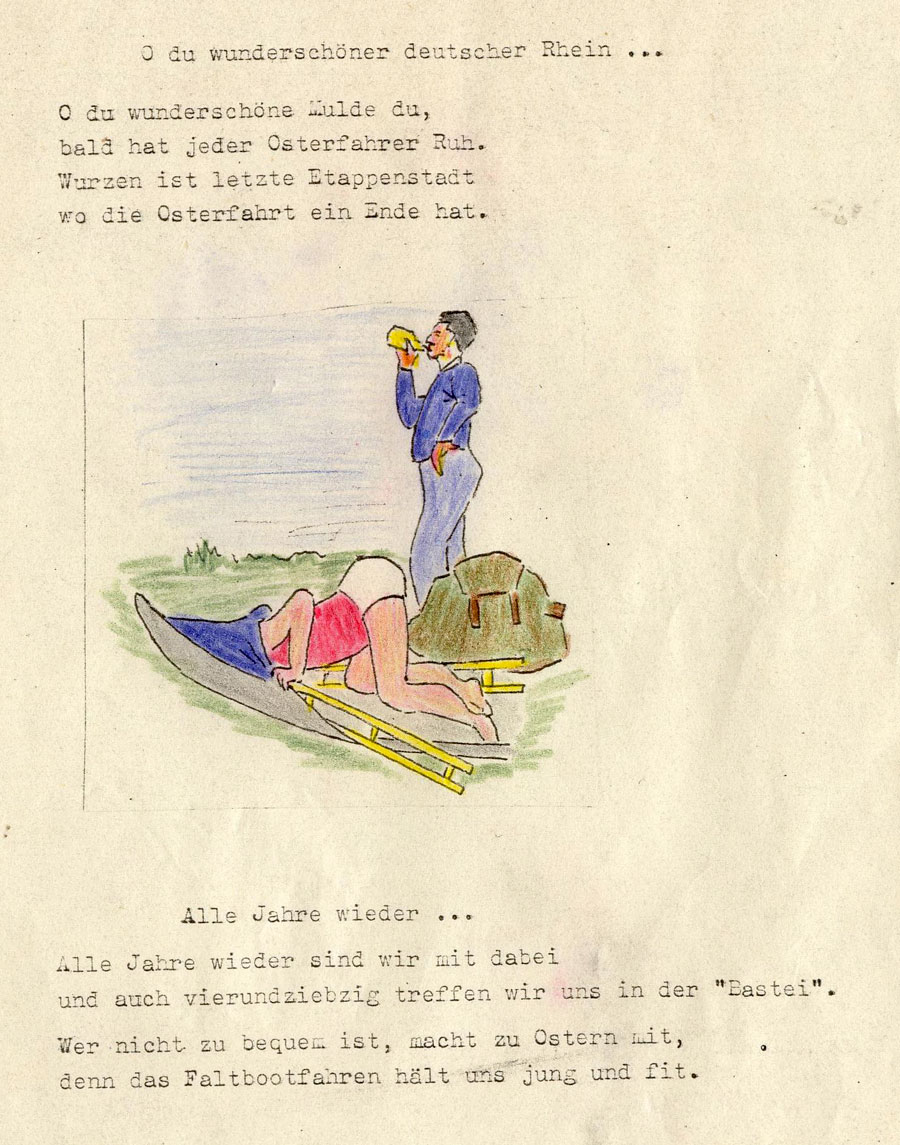 O du wunderschöner deutscher Rhein ...
O du wunderschöne Mulde du,
bald hat jeder Osterfahrer Ruh.
Wurzen ist letzte Etappenstadt
wo die Osterfahrt ein Ende hat.
Alle Jahre wieder ...
Alle Jahre wieder sind wir mit dabei
und auch vierundziebzig treffen wir uns in der "Bastei".
Wer nicht zu bequem ist, macht zu Ostern mit,
denn das Faltbootfahren hält uns jung und fit.